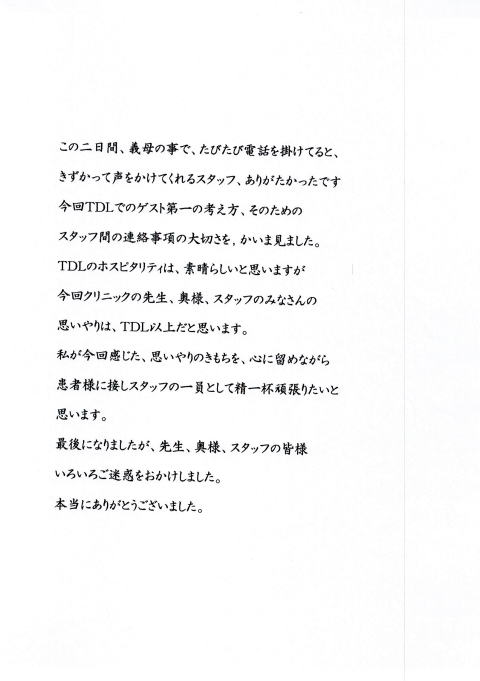 この二日間、義母の事で、たびたび電話を掛けてると、
きずかって声をかけてくれるスタッフ、ありがたかったです
今回TDLでのゲスト第一の考え方、そのための
スタッフ間の連絡事項の大切さを，かいま見ました。
TDLのホスピタリティは、素晴らしいと思いますが
今回クリニックの先生、奥様、スタッフのみなさんの
思いやりは、TDL以上だと思います。
私が今回感じた、思いやりのきもちを、心に留めながら
患者様に接しスタッフの一員として精一杯頑張りたいと
思います。
最後になりましたが、先生、奥様、スタッフの皆様
いろいろご迷惑をおかけしました。
本当にありがとうございました。